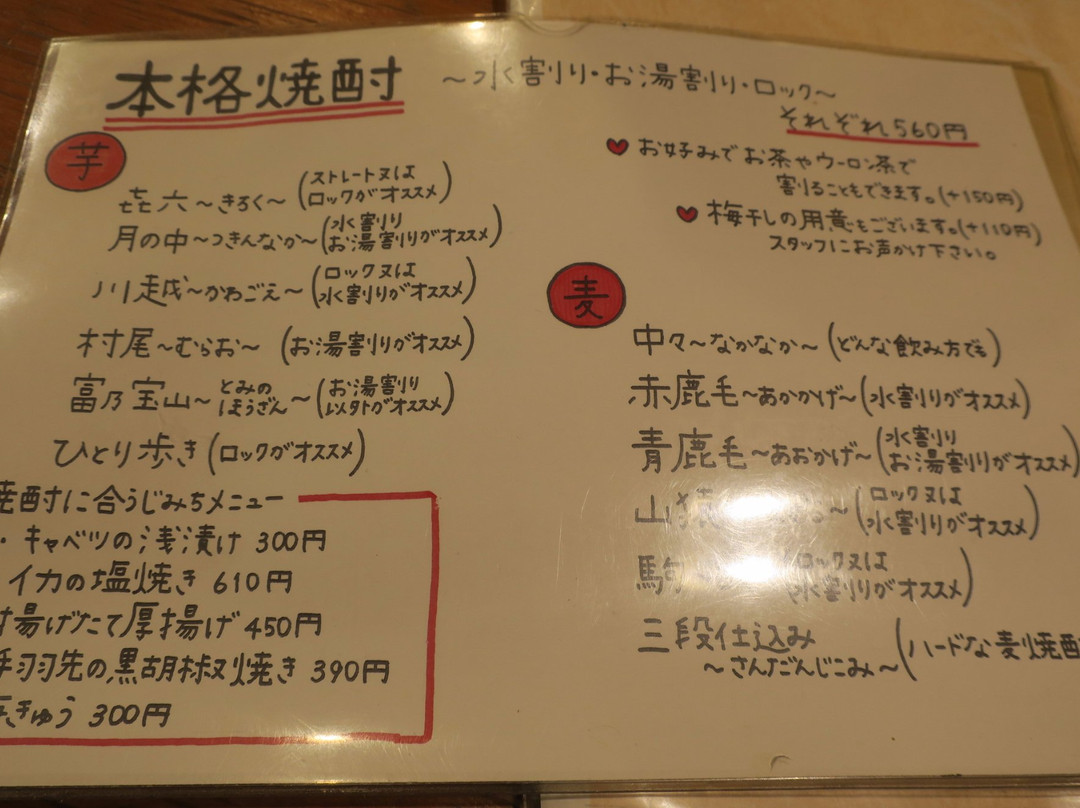 本格焼酎 ～水割り・お湯割り・ロック～
それぞれ560円
お好みでお茶やウーロン茶で
割ることもできます。(+150円)
梅干しの用意もございます。(+110円)
スタッフにお声かけ下さい。
芋
㐂六～きろく～(ストレート又は
ロックがオススメ)
月の中～つきんなか～(水割り
お湯割りがオススメ)
川越～かわごえ～(ロック又は
水割りがオススメ)
村尾～むらお～(お湯割りがオススメ)
富乃宝山～とみの
ほうざん～(お湯割り
以外がオススメ)
ひとり歩き(ロックがオススメ)
焼酎に合うじみちメニュー
・キャベツの浅漬け 300円
イカの塩焼き 610円
揚げたて厚揚げ 450円
手羽先の黒胡椒焼き 390円
きゅう 300円
麦
中々～なかなか～(どんな飲み方でも)
赤鹿毛～あかかげ～(水割りがオススメ)
青鹿毛～あおかげ～(水割り
お湯割りがオススメ)
山猿 ～(ロック又は
水割りがオススメ)
駒 (ロック又は
水割りがオススメ)
三段仕込み
～さんだんじこみ～(ハードな麦焼酎